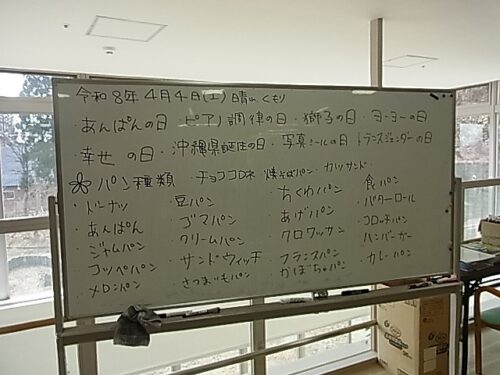 令和8年 4月4日(土) 晴れ くもり
あんぱんの日・ピアノ調律の日・獅子の日・ヨーヨーの日
幸せの日・沖縄県誕生の日・写真シールの日 トランスジェンダーの日
パン種類 ・チョココロネ 焼そばパン・カツサンド・
・ドーナツ 豆パン ちくわパン 食パン
・あんぱん ゴマパン ・あげパン ・バターロール
・ジャムパン クリームパン ・クロワッサン ・コロッケパン
・コッペパン ・サンドウィッチ ・フランスパン ・ハンバーガー
・メロンパン ・さつまいもパン ・かぼちゃパン ・カレーパン